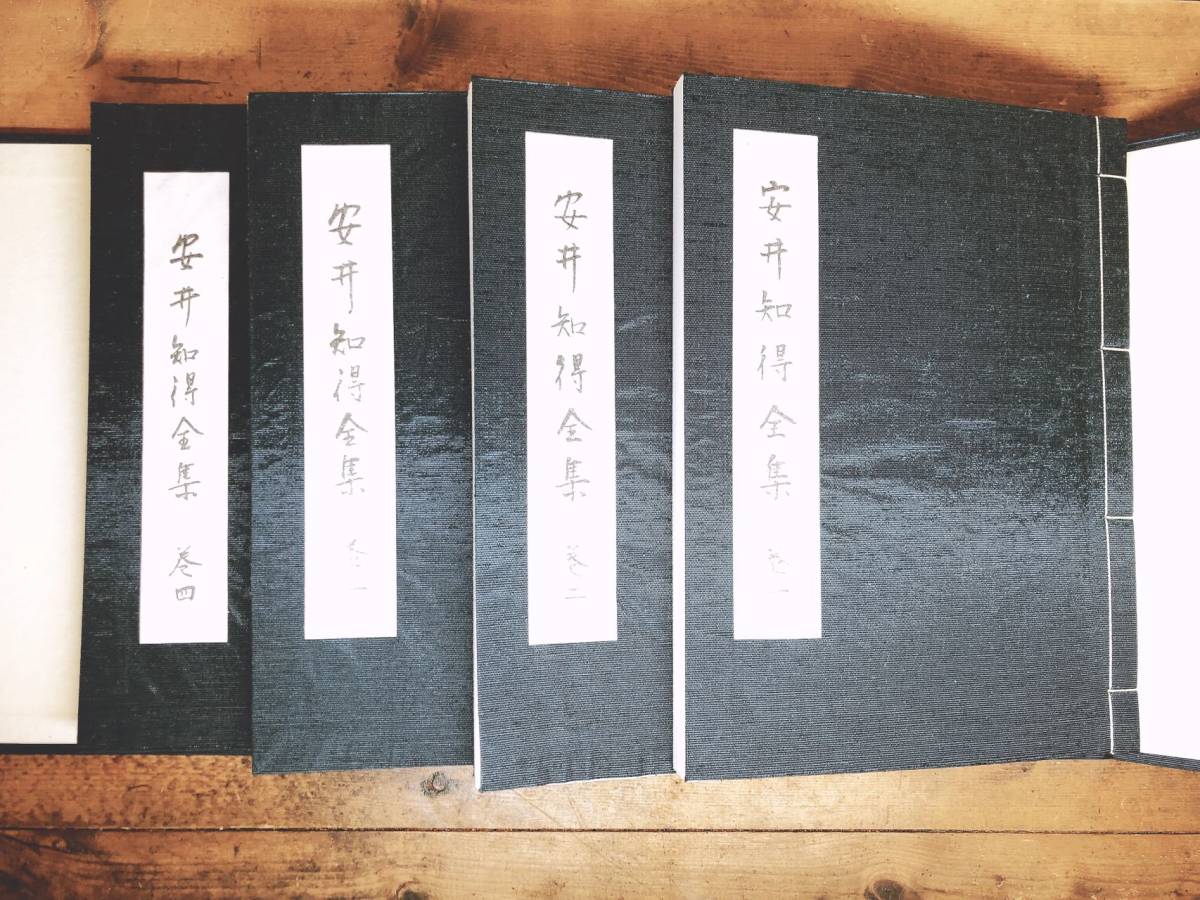 安井知得全集 巻一
安井知得全集 巻二
安井知得全集 巻
安井知得全集 巻四